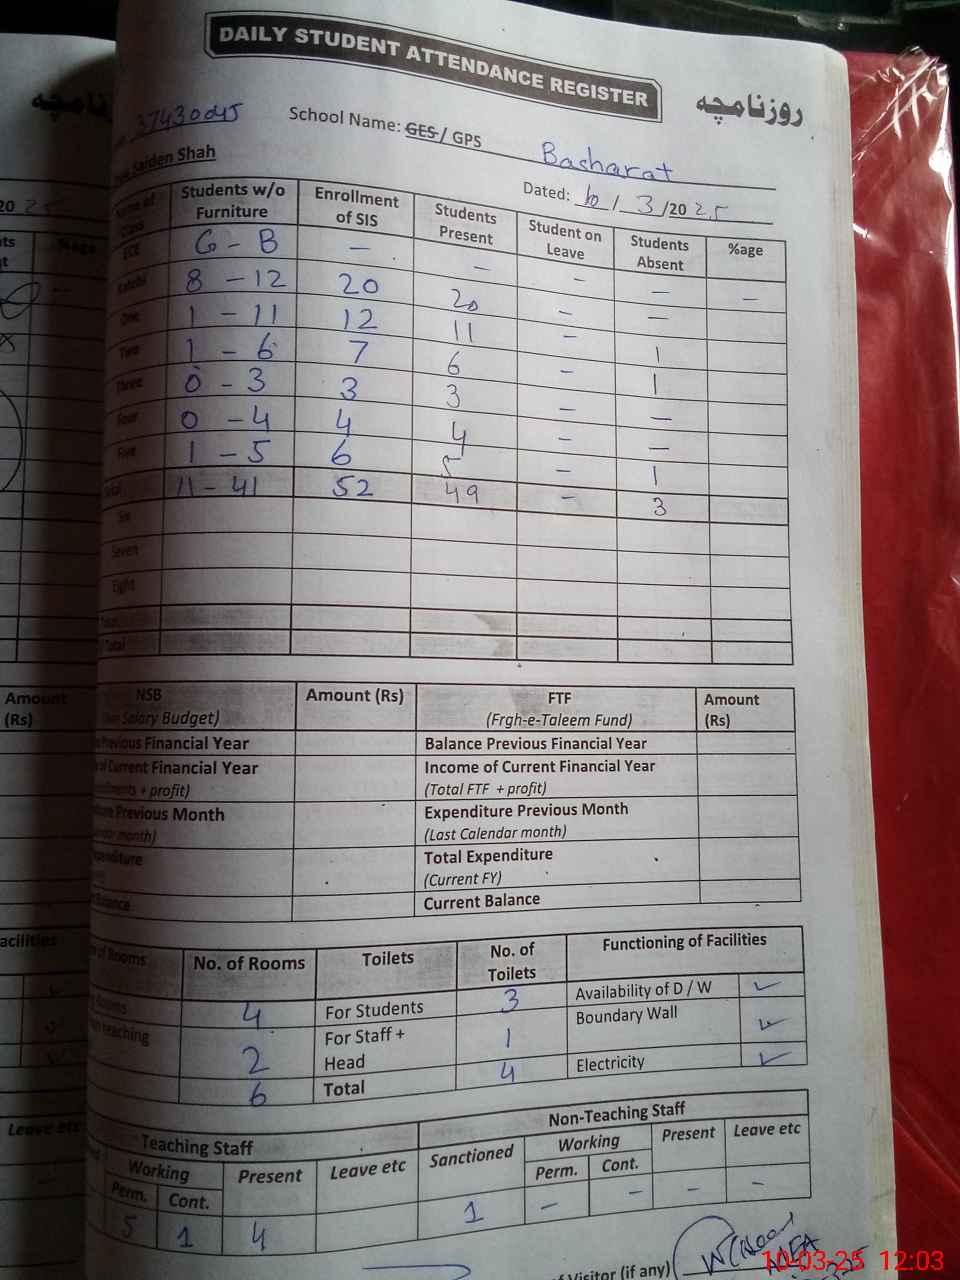 DAILY STUDENT ATTENDANCE REGISTER
روزنامچہ
37430045 School Name: GES / GPS Basharat
Saiden Shah
Dated: 10 / 3 /20 25
Name of Class Students w/o Furniture Enrollment of SIS Students Present Student on Leave Students Absent %age
ECE G - B - - - - -
Katchi 8 - 12 20 20 - -
One 1 - 11 12 11 - 1
Two 1 - 6 7 6 - 1
Three 0 - 3 3 3 - -
Four 0 - 4 4 4 - -
Five 1 - 5 6 5 - 1
Total 11 - 41 52 49 - 3
Six
Seven
Eight
Total
Total
NSB Amount (Rs) FTF Amount (Rs)
Salary Budget) (Frgh-e-Taleem Fund)
Previous Financial Year Balance Previous Financial Year
of Current Financial Year Income of Current Financial Year
+ profit) (Total FTF + profit)
Previous Month Expenditure Previous Month
month) (Last Calendar month)
Total Expenditure
(Current FY)
Current Balance
of Rooms No. of Rooms Toilets No. of Toilets Functioning of Facilities
4 For Students 3 Availability of D / W ✓
teaching 2 For Staff + Head 1 Boundary Wall ✓
6 Total 4 Electricity ✓
Teaching Staff Non-Teaching Staff
Working Present Leave etc Sanctioned Working Present Leave etc
Perm. Cont. Perm. Cont.
5 1 4 1 - - - -
of Visitor (if any)
AEA
10-03-25 12:03
20 25
Amount
(Rs)
acilities
Leave etc